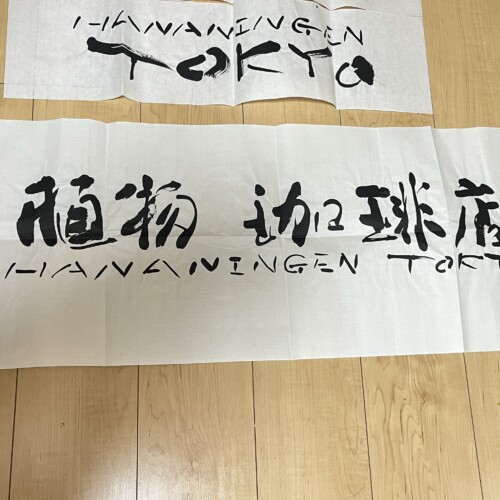 HANANINGEN
TOKYO
植物 珈琲店
HANANINGEN TOKY